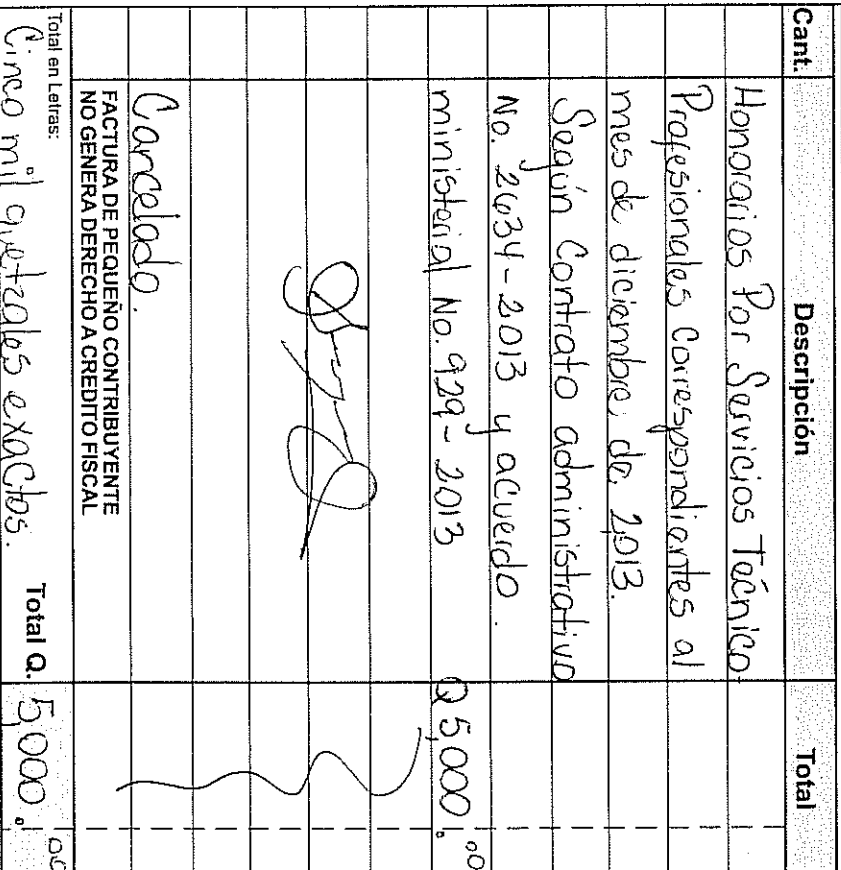 Cant. Descripción Total
Honorarios Por Servicios Técnico
Profesionales Correspondientes al
mes de diciembre de 2013.
Según Contrato administrativo
No. 2634-2013 y acuerdo.
ministerial No. 929-2013 Q 5,000.00
Cancelado.
FACTURA DE PEQUEÑO CONTRIBUYENTE
NO GENERA DERECHO A CREDITO FISCAL
Total en Letras:
Cinco mil quetzales exactos. Total Q. 5,000.00